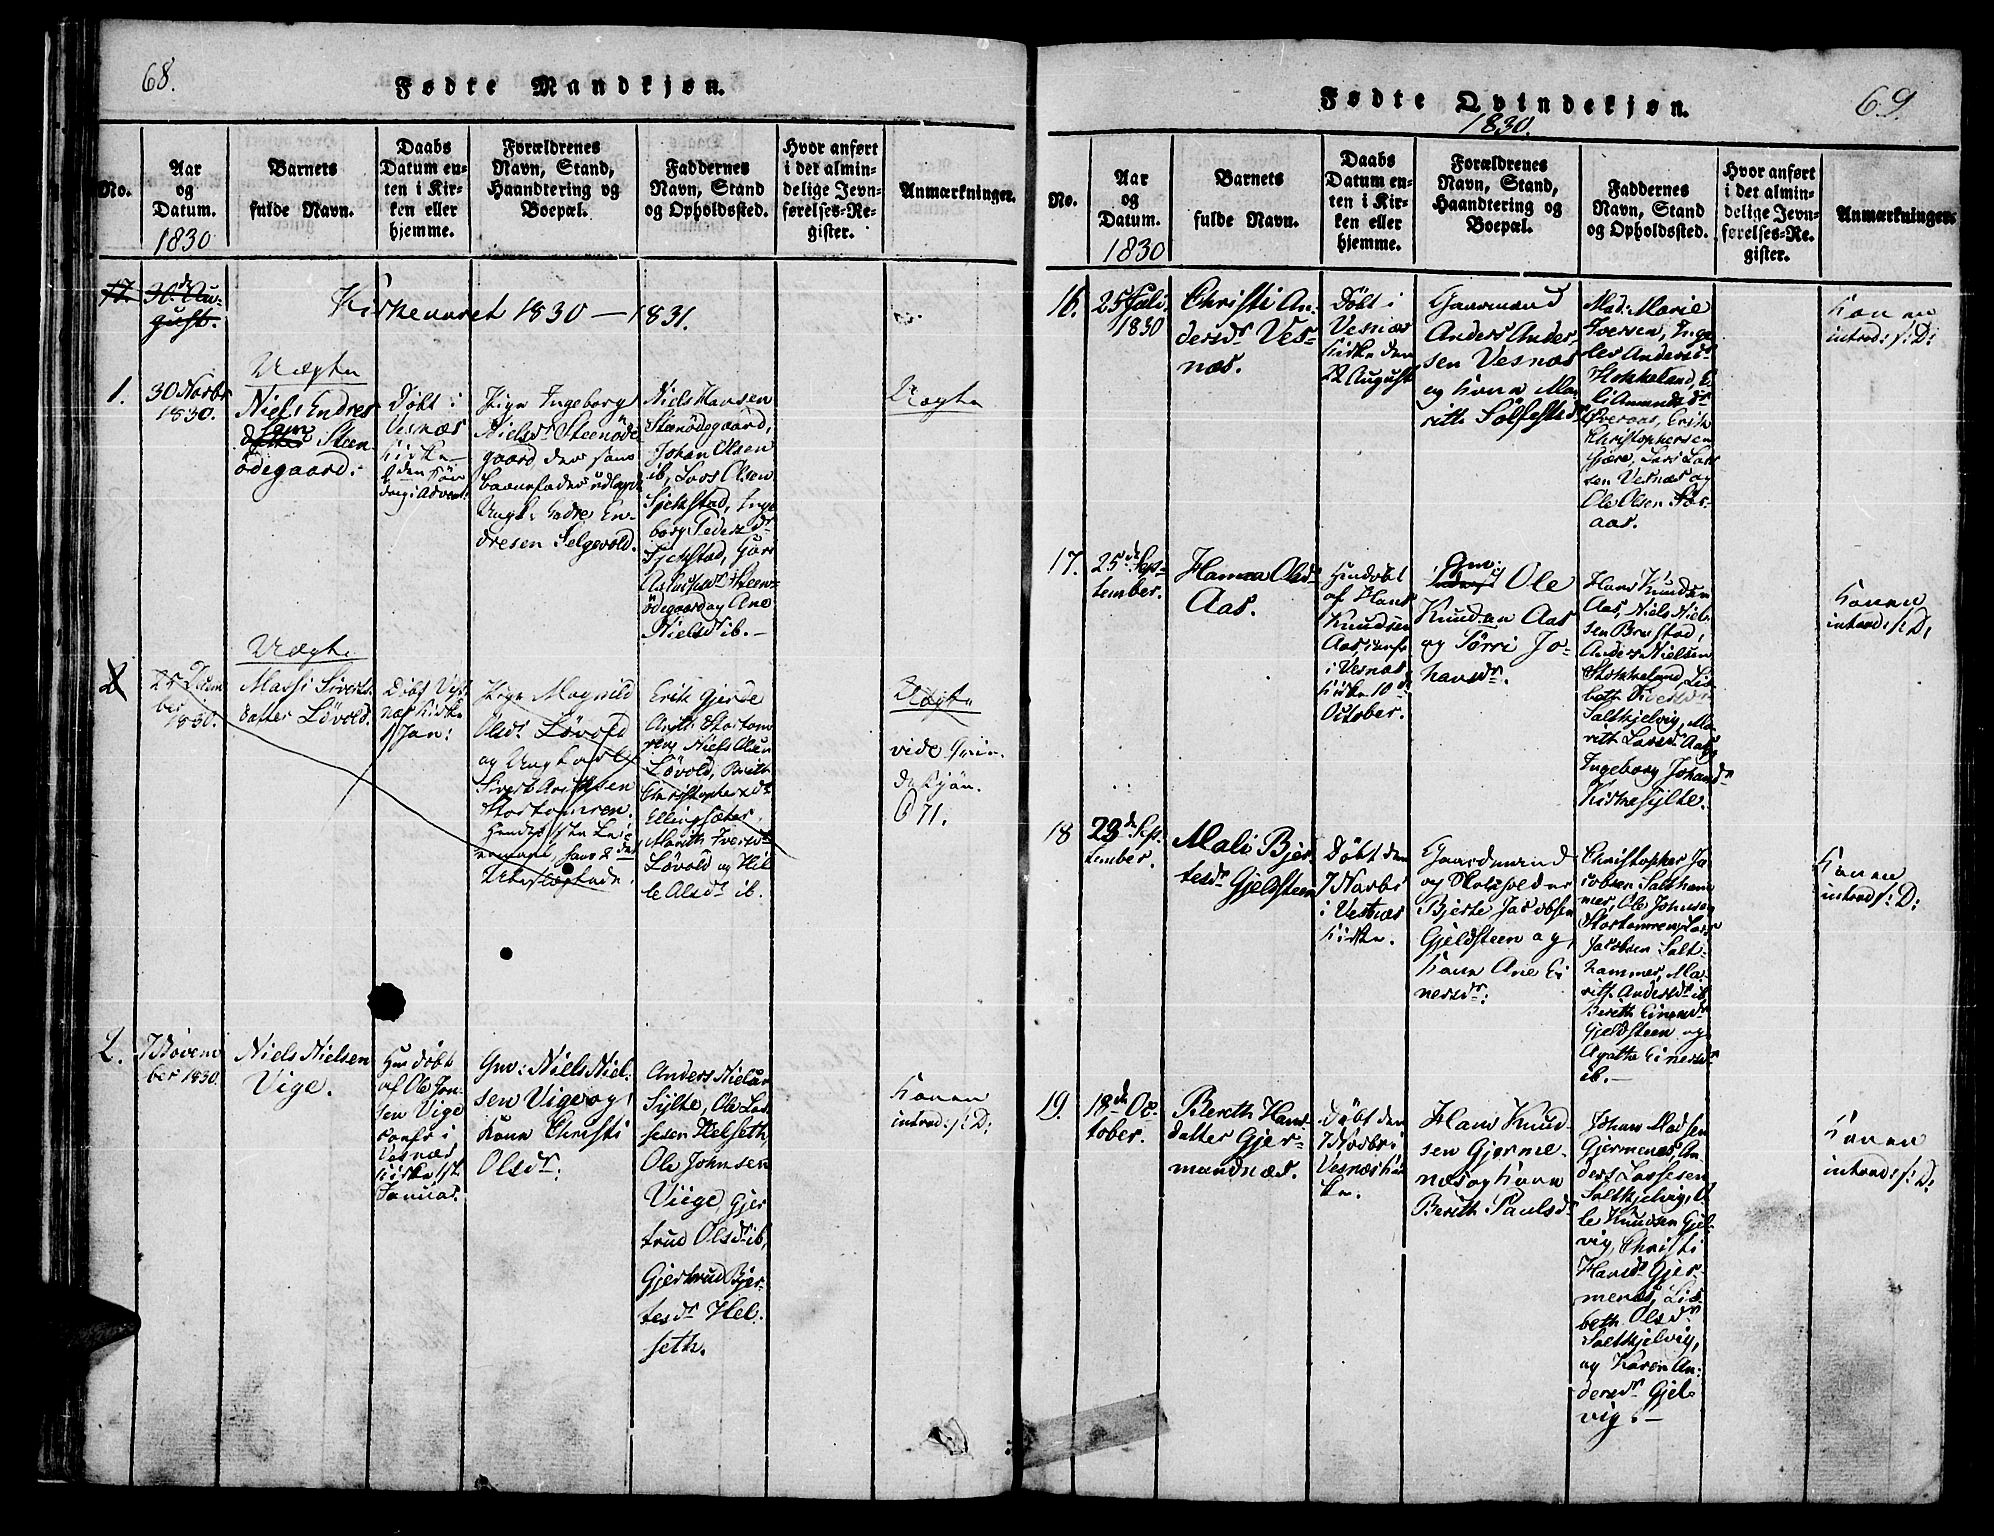 68.
Fødte Mandkjøn.
No.
Aar
og
Datum.
1830
Barnets
fulde Navn.
Daabs
Datum en-
ten i Kir-
ken eller
hjemme.
Forældrenes
Navn, Stand,
Haandtering og
Boepæl.
Faddernes
Navn, Stand
og Opholdssted.
Hvor anført
i det almin-
delige Jevn-
førelses-Re-
gister.
Anmærkninger.
17.
30 Au-
gust.
Kirkeaaret 1830 — 1831.
1.
30 Novbr
1830.
Uægte
Niels Endres
datter Søn Steen-
ødegaard.
Døbt i
Vesnæs
Kirke
den Søn
dag i Advent
Pige Ingeborg
Nielsdr Steenøde
gaard, der som
barnefader udlagde
Ungk. Endre En-
dresen Selgevold.
Niels Hansen
Steenødegaard,
Johan Olsen
ib, Lars Olsen
Sjekstad, Inge
borg Pedersdr
Sjekstad, Guri
Steen-
ødegaard og Ane
Nielsdr ib.—
Uægte
2
25 Decem
ber
1830.
Uægte
Massi Siverts
datter Løvold.
Døbt Ves
næs Kirke
1 Jan:
Pige Magnild
Olsdr Løvold
og Ungkarl
Sivert
Stortomren.
Hendes 1ste Lei
ermaal, hans 2den
Uteslagtede.
Erik Gjerde
Stortom
ren, Niels Olsen
Løvold, Brith
Christophersdr
Ellingsæter,
Marith Iversdr
Løvold og Hil
le Olsdr ib.
Uægte
vide Qvin
dekjøn.
P 71.
2.
7 Novem
ber 1830.
Niels Nielsen
Vige.
Hiemdøbt
af Ole Jon-
sen Vige
conf: i
Vesnæs
Kirke 1ste
Januar.
Gm: Niels Niel-
sen Vige og
Kone Christi
Olsdr:
Anders Nielsen
Sylte, Ole Las-
sesen Helseth
Ole Johnsen
Viige, Gjer
trud Olsdr ib,
Gjertrud Bjer-
tesdr Hel-
seth.
Konen
introd: f: D:
Fødte Qvindekjøn.
1830.
69.
No.
Aar
og
Datum.
1830
Barnets
fulde Navn.
Daabs
Datum en-
ten i Kir-
ken eller
hjemme.
Forældrenes
Navn, Stand,
Haandtering og
Boepæl.
Faddernes
Navn, Stand
og Opholdssted.
Hvor anført
i det almin-
delige Jevn-
førelses-Re-
gister.
Anmærkninger.
16.
25 Juli
1830
Christi An-
dersdr Ves-
næs.
Døbt i
Vesnæs
Kirke den
22 August
Gaarmand
Anders Ander-
sen Vesnæs
og Kone Ma
rith Sølfestdr
Mad: Marie
Iversen, Inge
ler Andersdr
Hokkeland, E-
li Amundsdr
Øveraas, Erik
Christophersen
Gjære, Lars Lar
sen Vesnæs og
Ole Olsen
aas.
Konen
introd: f: D:
17.
25de Sep-
tember.
Hanna Olsdr
Aas.
Hiemdøbt
af Hans
Knudsen
Aas, conf:
i Vesnæs
Kirke 10de
October.
Gm:
Ole
Knudsen Aas
og Sørri Jo-
hansdr.
Hans Knudsen
Aas, Niels Niel-
sen Brustad,
Anders Nielsen
Stokkeland, Lis
beth Siversdr
Saltkjelvig, Ma
rith Larsdr Aas,
Ingeborg Johansdr
Kirkesylte.
Konen
introd: f: D:
18
23de Sep-
tember.
Mali Bjer
tesdr Gjeldsteen
Døbt den
7 Novbr
i Vestnæs
Kirke.
Gaardmand
og Skoleholder
Bjerte Jacobsen
Gjeldsteen og
Kone Ane Ei
nersdr:
Christopher Ja
cobsen Saltham
mer, Ole Johnsen
Stortomren, Lars
Jacobsen Salt-
hammer, Ma-
rith Andersdr ib,
Bereth Einersdr
Gjeldsteen og
Agathe Einersdr
ib.—
Konen
introd f: D:
19.
18de Oc-
tober.
Bereth Hans
datter Gjer-
mundnæs.
Døbt den
7 Novbr i
Vesnæs Kir
ke.
Hans Knud-
sen Gjerme-
næs og Kone
Bereth Paulsdr
Johan Madsen
Gjermenæs, An-
ders Lassesen
Saltkjelvig, O
le Knudsen Gjel-
vig, Christi
Hansdr Gjer-
menæs, Lis-
beth Olsdr
Saltkjelvig,
og Karen An-
dersdr Gjel-
vig.—
Konen
introd: f: D: